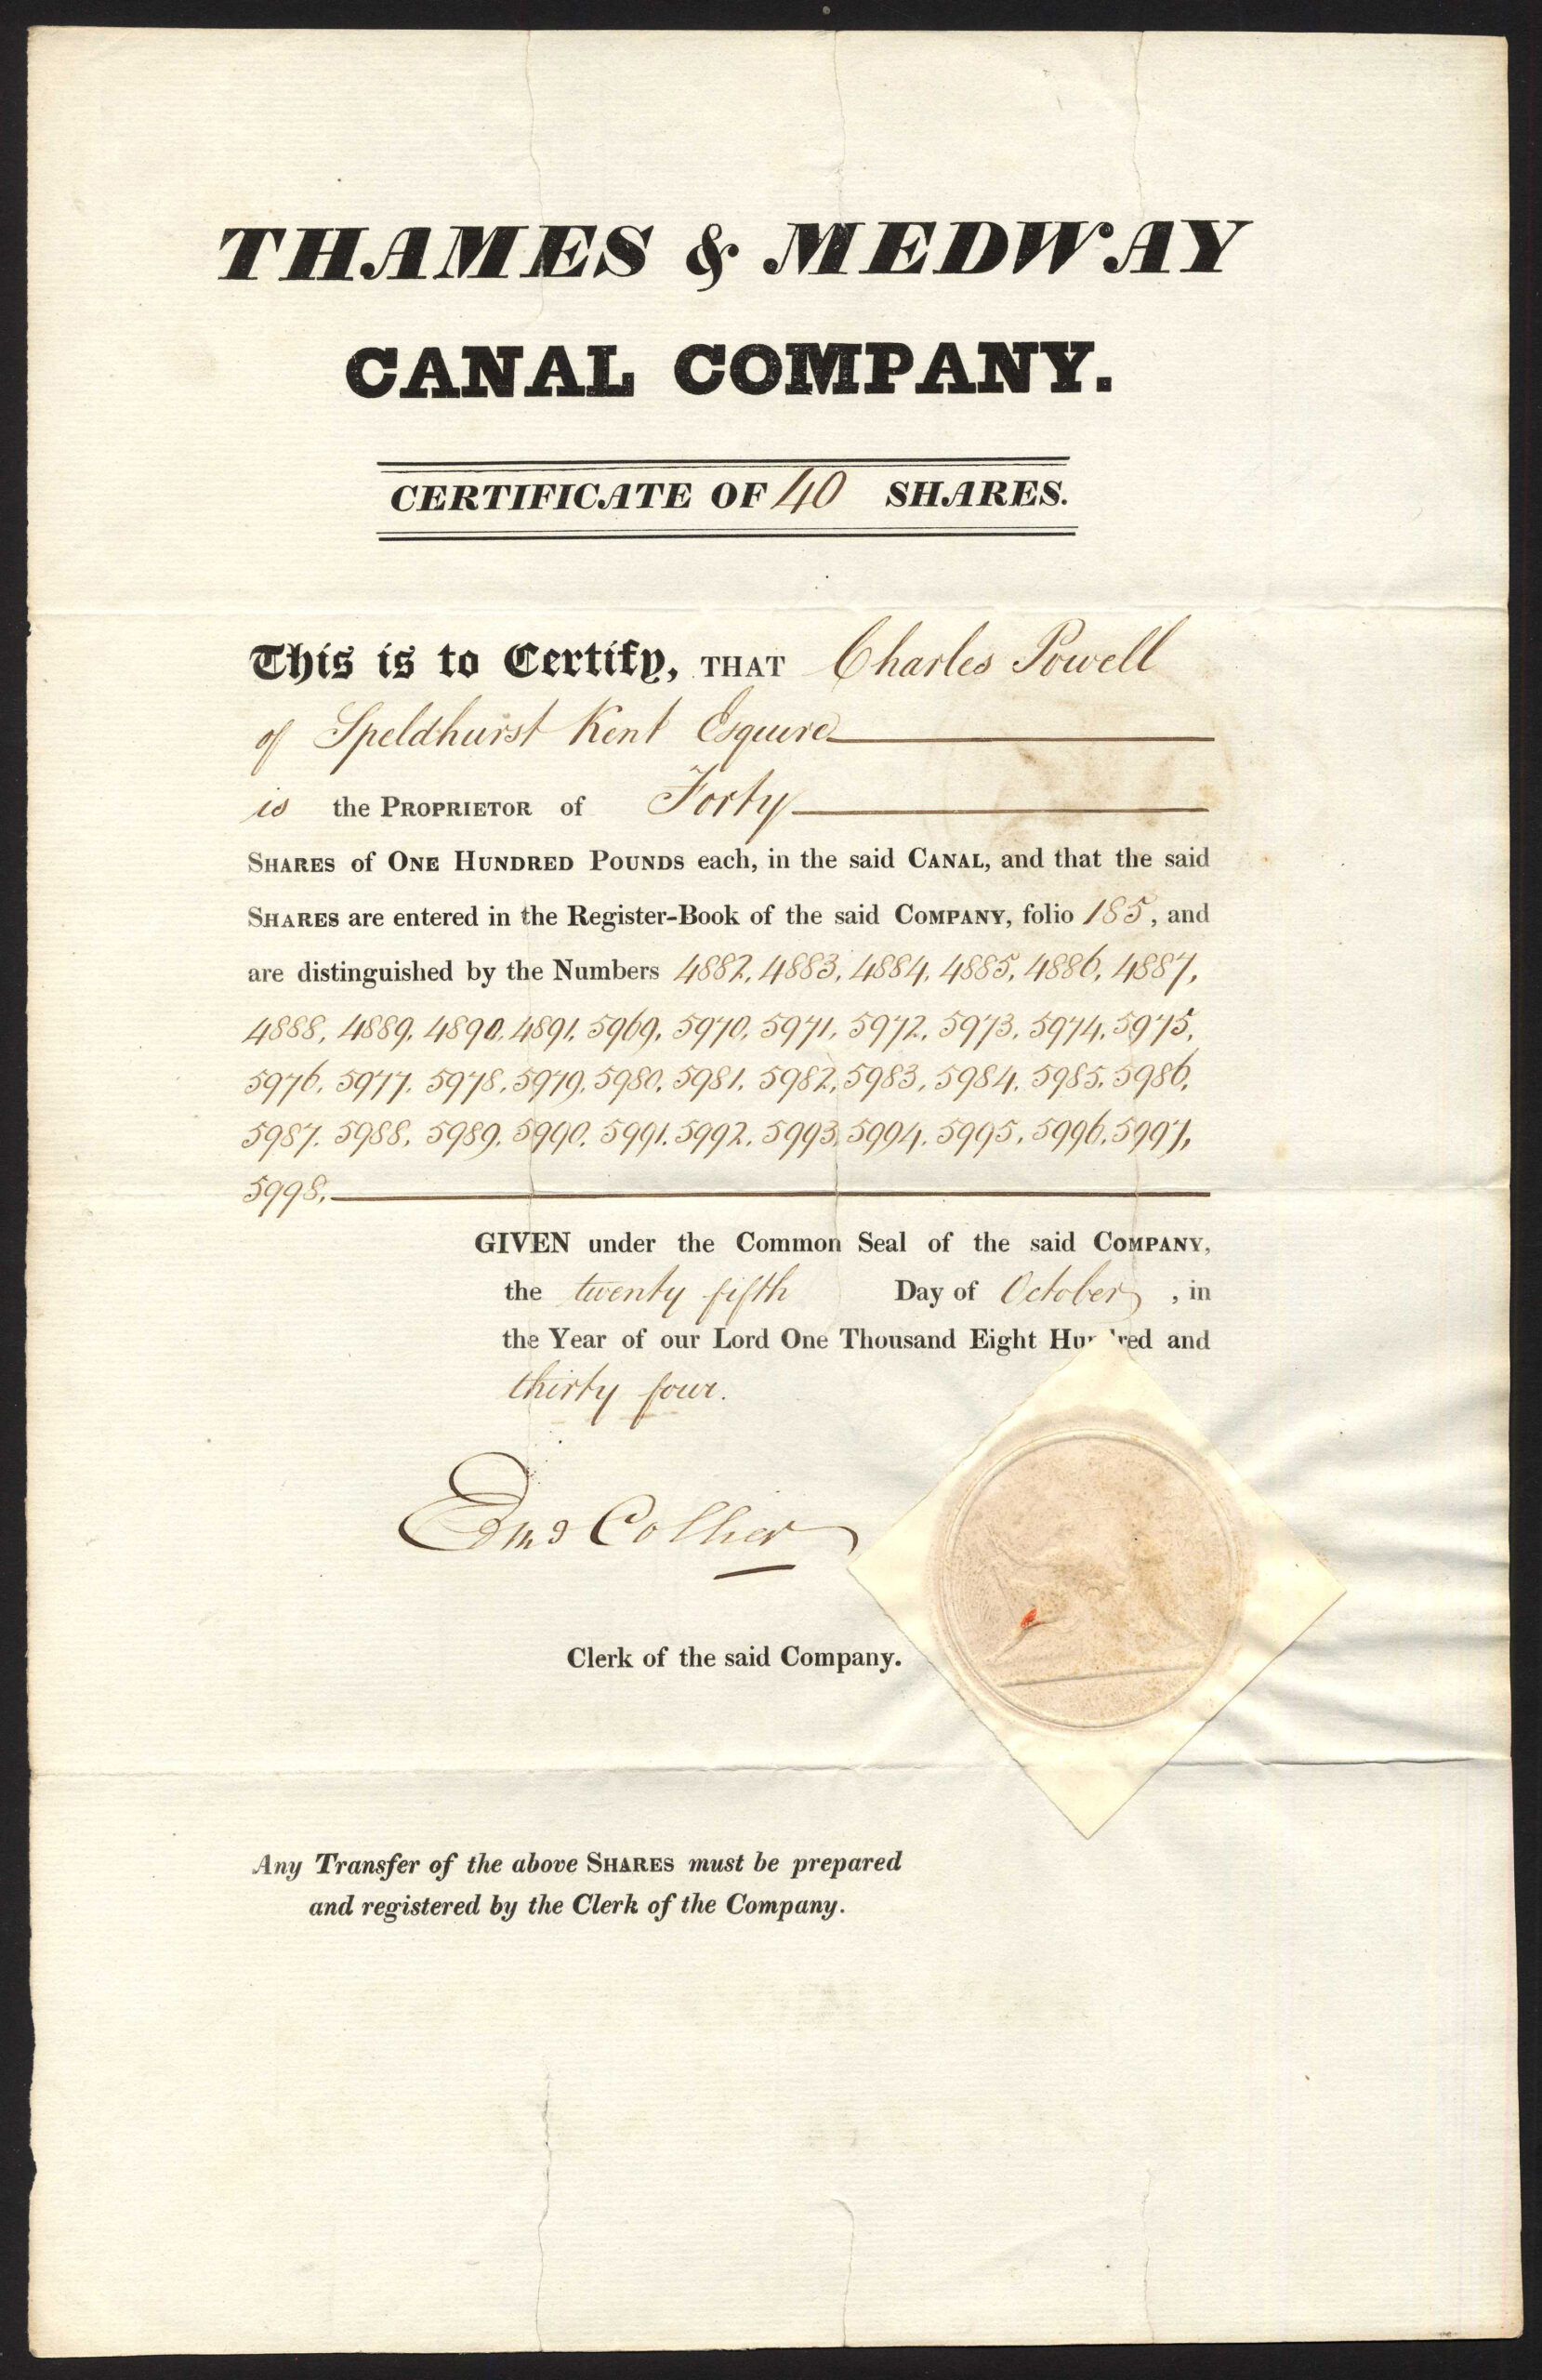 THAMES & MEDWAY
CANAL COMPANY.
CERTIFICATE OF 40 SHARES.
This is to Certify, THAT Charles Powell
of Speldhurst Kent Esquire
is the PROPRIETOR of Forty
SHARES of ONE HUNDRED POUNDS each, in the said CANAL, and that the said
SHARES are entered in the Register-Book of the said COMPANY, folio 185, and
are distinguished by the Numbers 4882, 4883, 4884, 4885, 4886, 4887,
4888, 4889, 4890, 4891, 5969, 5970, 5971, 5972, 5973, 5974, 5975,
5976, 5977, 5978, 5979, 5980, 5981, 5982, 5983, 5984, 5985, 5986,
5987, 5988, 5989, 5990, 5991, 5992, 5993, 5994, 5995, 5996, 5997,
5998.
GIVEN under the Common Seal of the said COMPANY,
the twenty fifth Day of October, in
the Year of our Lord One Thousand Eight Hundred and
thirty four.
Edmd Collier
Clerk of the said Company.
Any Transfer of the above SHARES must be prepared
and registered by the Clerk of the Company.